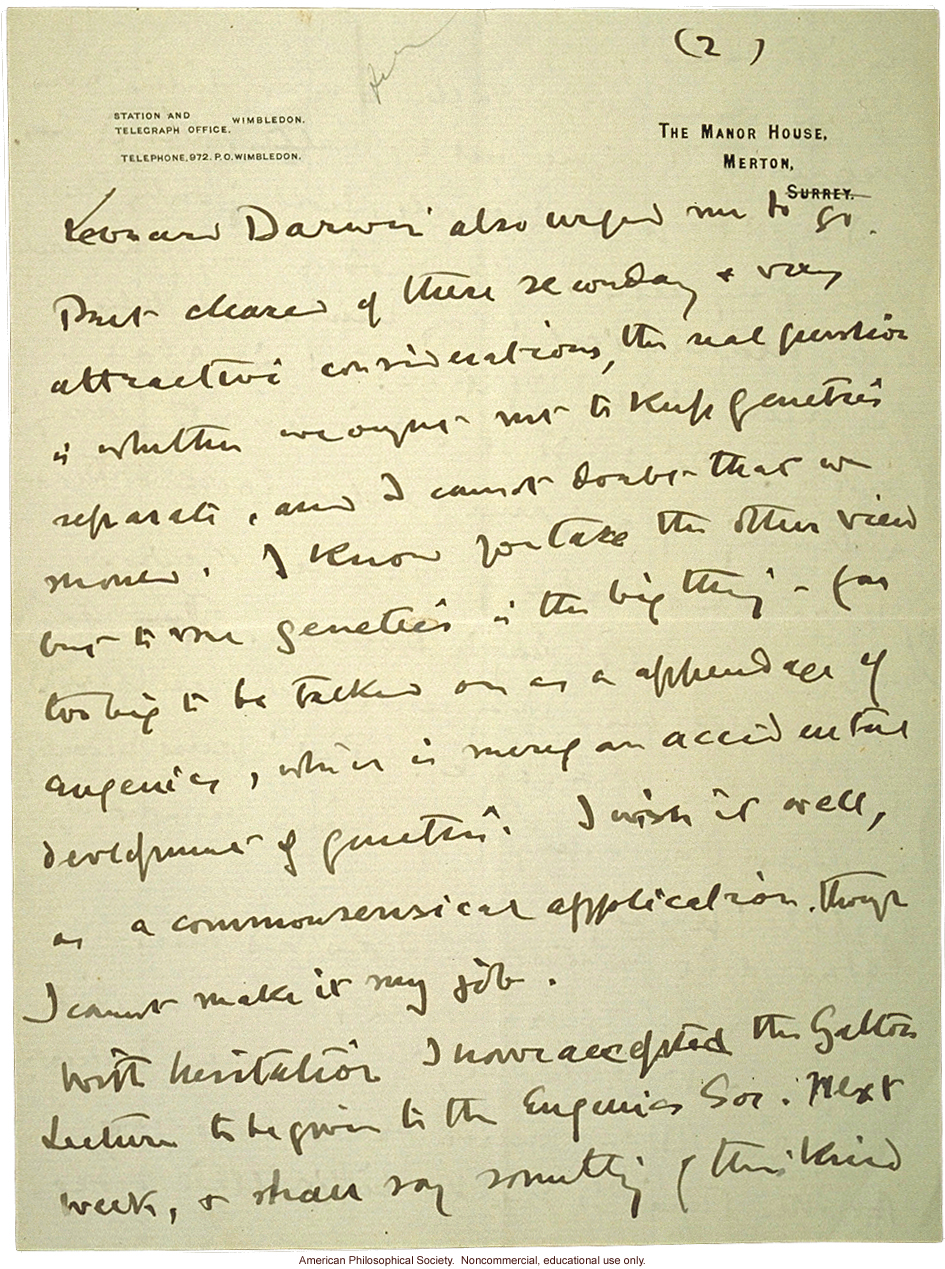 (2)
STATION AND
TELEGRAPH OFFICE, WIMBLEDON.
TELEPHONE, 972. P.O. WIMBLEDON.
THE MANOR HOUSE,
MERTON,
SURREY.
Leonard Darwin also urged me to go.
But cleared of these secondary & very
attractive considerations, the real question
is whether we ought not to keep genetics
separate, and I cannot doubt that we
should. I know you take the other view
but to me genetics is the big thing - far
too big to be tacked on as a appendage of
eugenics, which is merely an accidental
development of genetics. I wish it well,
as a commonsensical application, though
I cannot make it my job.
With hesitation I have accepted the Galton
Lecture to be given to the Eugenics Soc. next
week, & shall say something of this kind
American Philosophical Society. Noncommercial, educational use only.